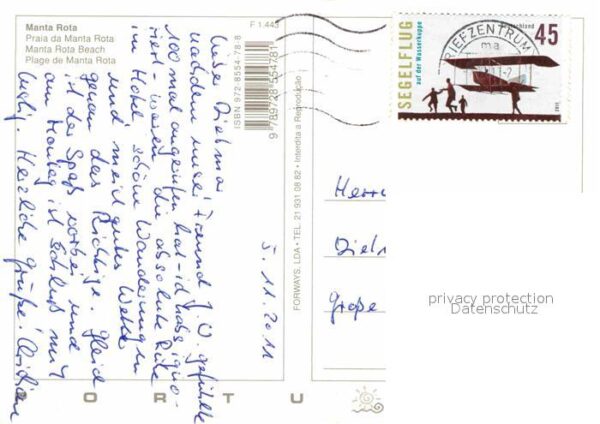 Manta Rota
Praia da Manta Rota
Manta Rota Beach
Plage de Manta Rota
F 1.443
ISBN 972 8554-78-8
9 789728 554781
FORWAYS, LDA • TEL. 21 931 08 82 • Interdita a Reprodução
PORTU
Lieber Dietmar
nachdem unser Freund J.W. gefühlte
100 mal angerufen hat - ich habs igno-
riert - waren die absolute Ruhe
im Hotel, schöne Wanderungen
und meist gutes Wetter
genau das Richtige. Gleich
ist der Spaß vorbei und
am Montag ist Schluß mit
lustig. Herzliche Grüße!
5.11.2011
Herrn
Große
SEGELFLUG
auf der Wasserkuppe
Deutschland
45
2011
BRIEFZENTRUM
privacy protection
Datenschutz